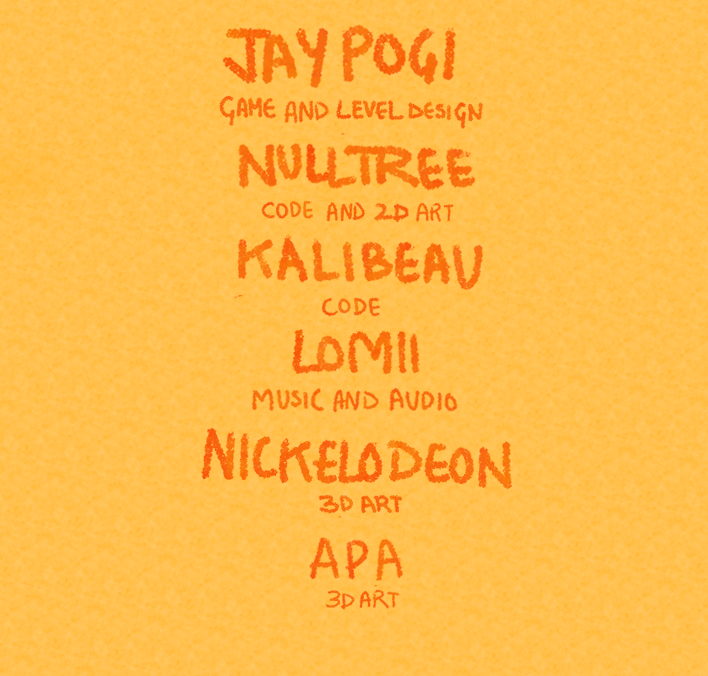 JAY POGI
GAME AND LEVEL DESIGN
NULLTREE
CODE AND 2D ART
KALIBEAU
CODE
LOMII
MUSIC AND AUDIO
NICKELODEON
3D ART
APA
3D ART